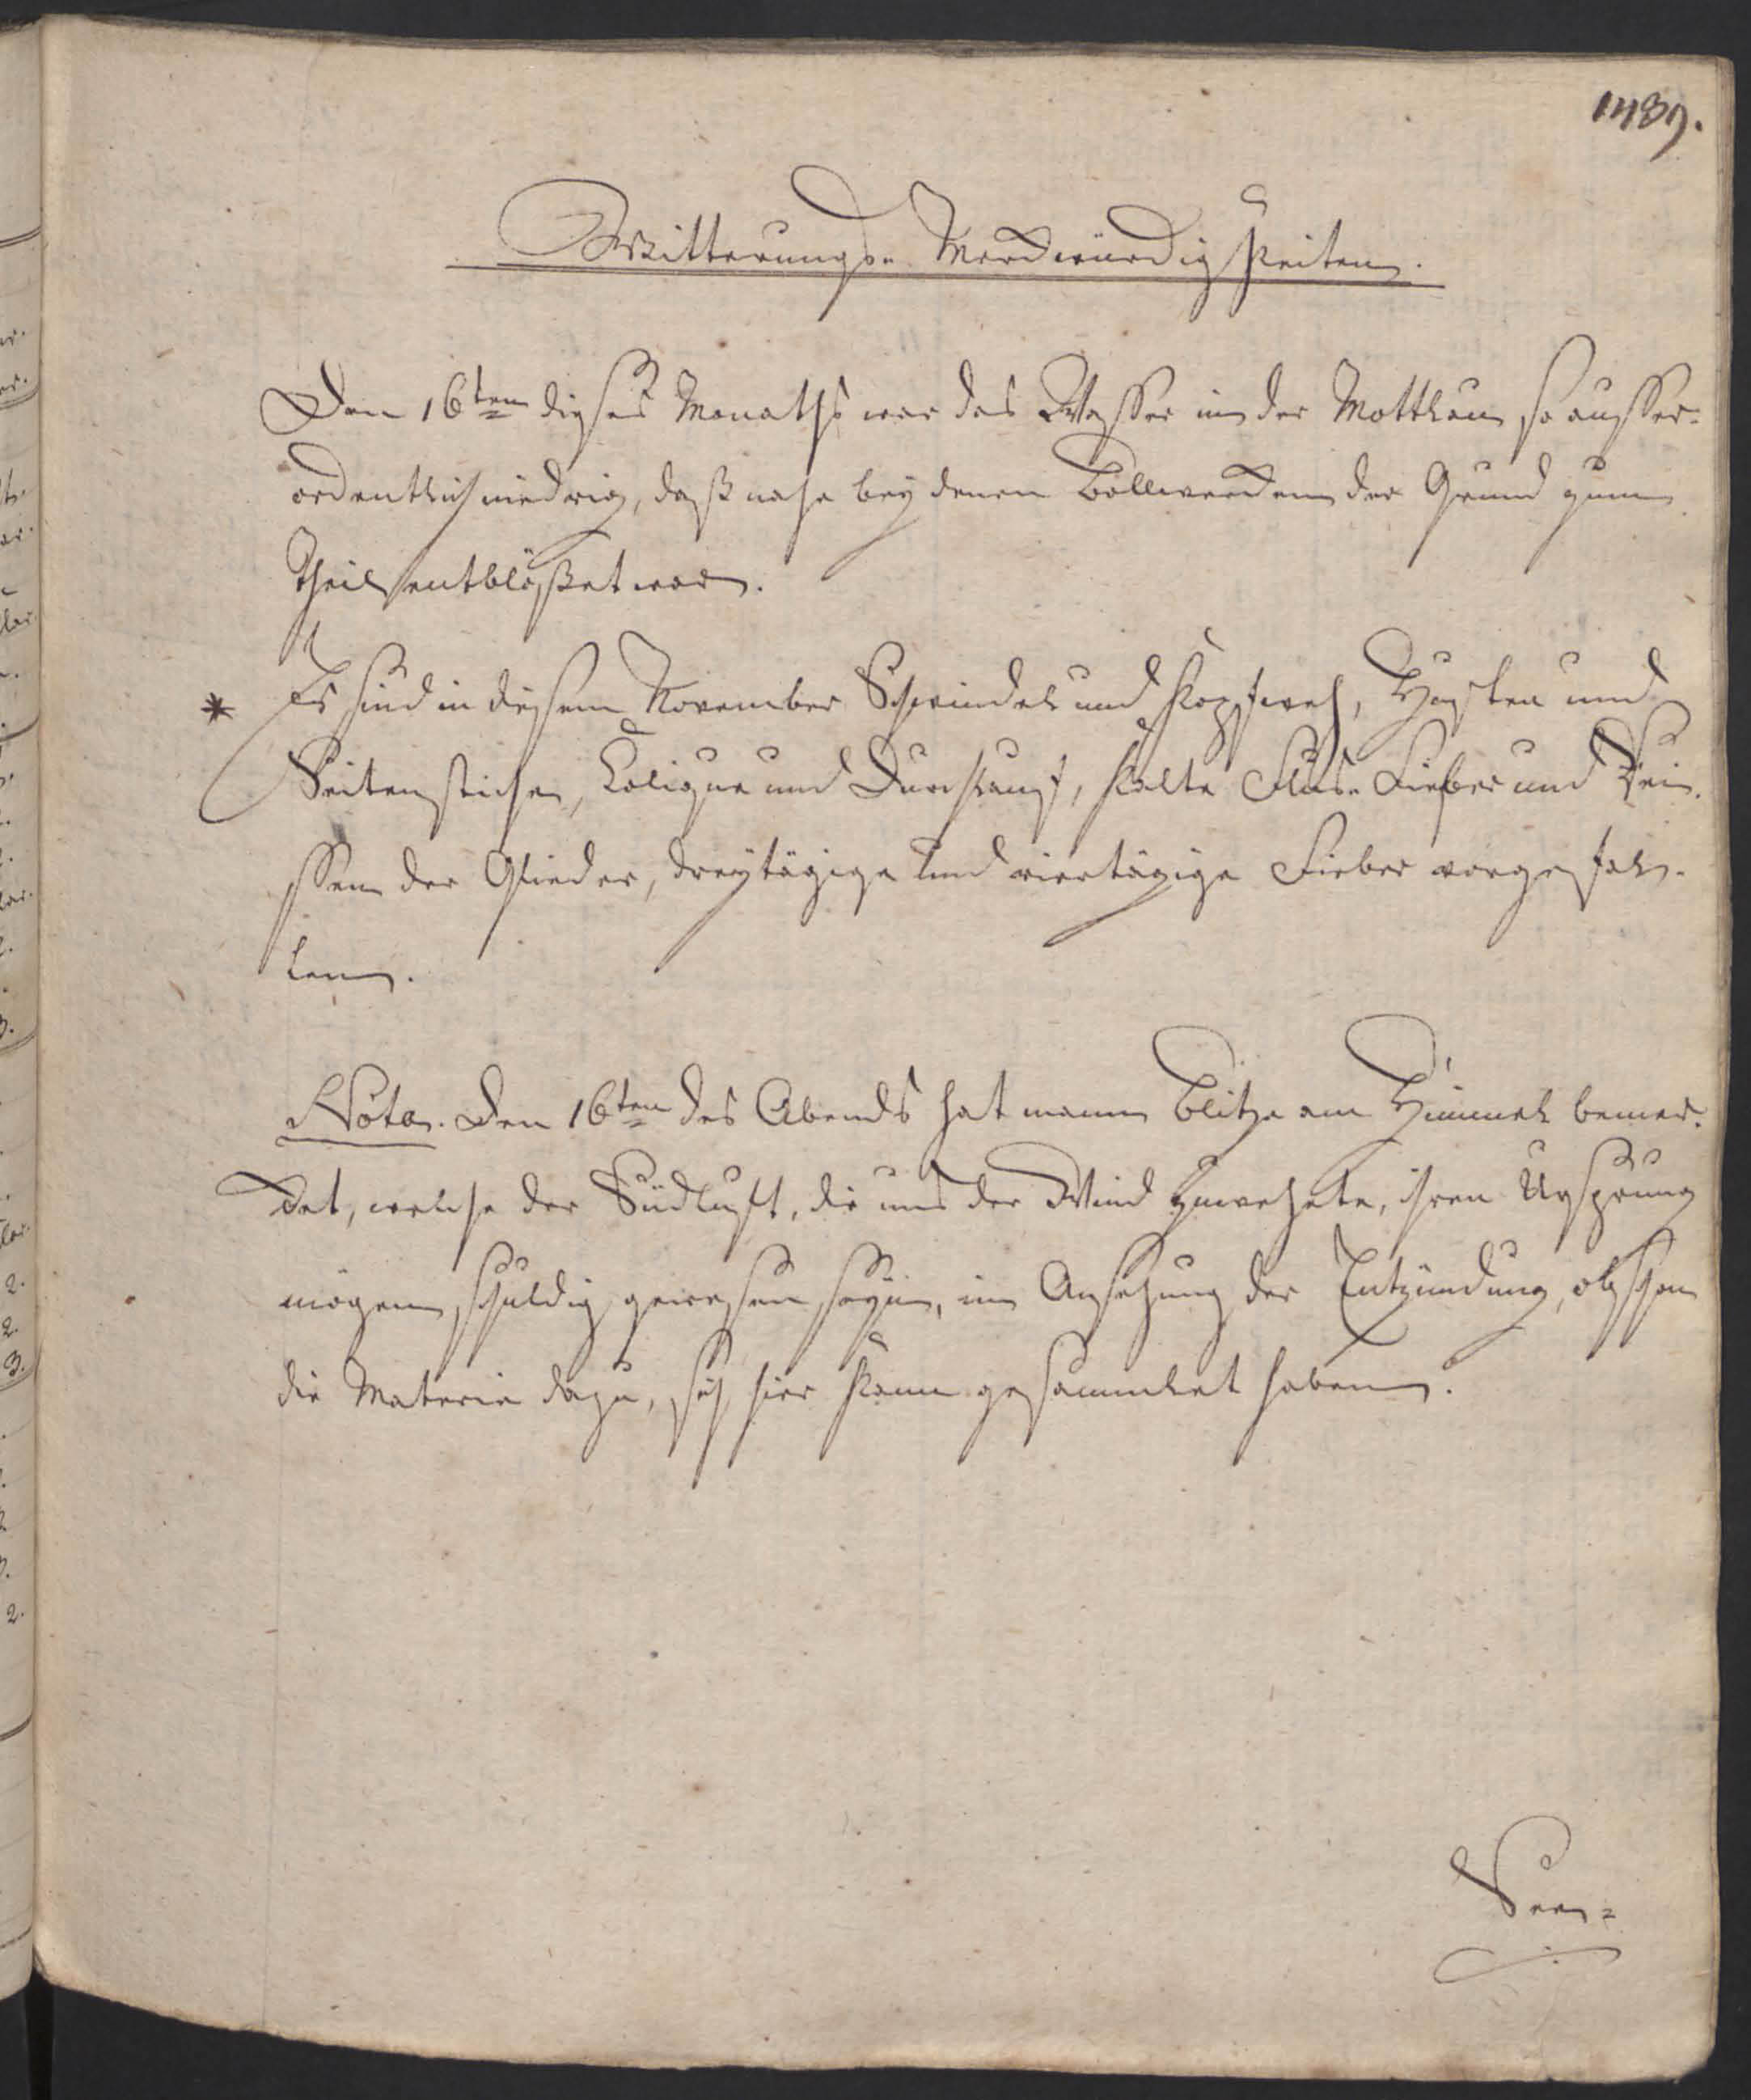 1489.
Witterungs- Merckwürdigkeiten.
Den 16ten dieses Monaths war das Wasser in der Mottlau so ausser-
ordentlich niedrig, daß nahe bey denen Bollwercken der Grund zum
Theil entblößet war.
* Es sind in diesem November Schwindel und Kopfweh, Husten und
Seitenstiche, Colique und Durchlauf, kalte Flus- Fieber und Rei-
ssen der Glieder, dreytägige und viertägige Fieber vorgefal-
len.
Nota. Den 16ten des Abends hat mann Blitze am Himmel bemer-
cket, welche der Südluft, die uns der Wind zuwehete, ihren Ursprung
mögen schuldig gewesen seyn, in Ansehung der Entzündung, obschon
die Materie dazu, sich hier kann gesammlet haben.